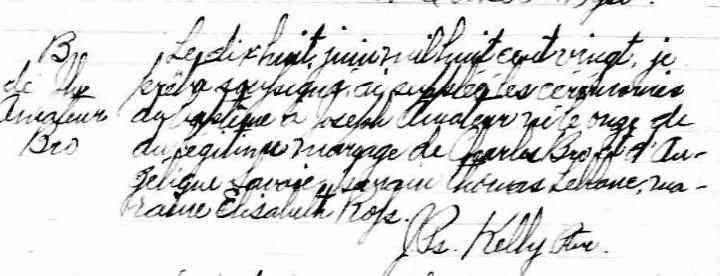 B
Le dix huit, juin mil huit cent vingt, je
de
prêtre soussigné, ai suppléé les cérémonies
Amateur
du baptême à Joseph Amateur né le onze de
Bro
du légitime mariage de Charles Bro et d'An-
gélique Savoie, parrain Thomas Leblanc, ma-
raine Elisabeth Rops.
Ps. Kelly Ptre.